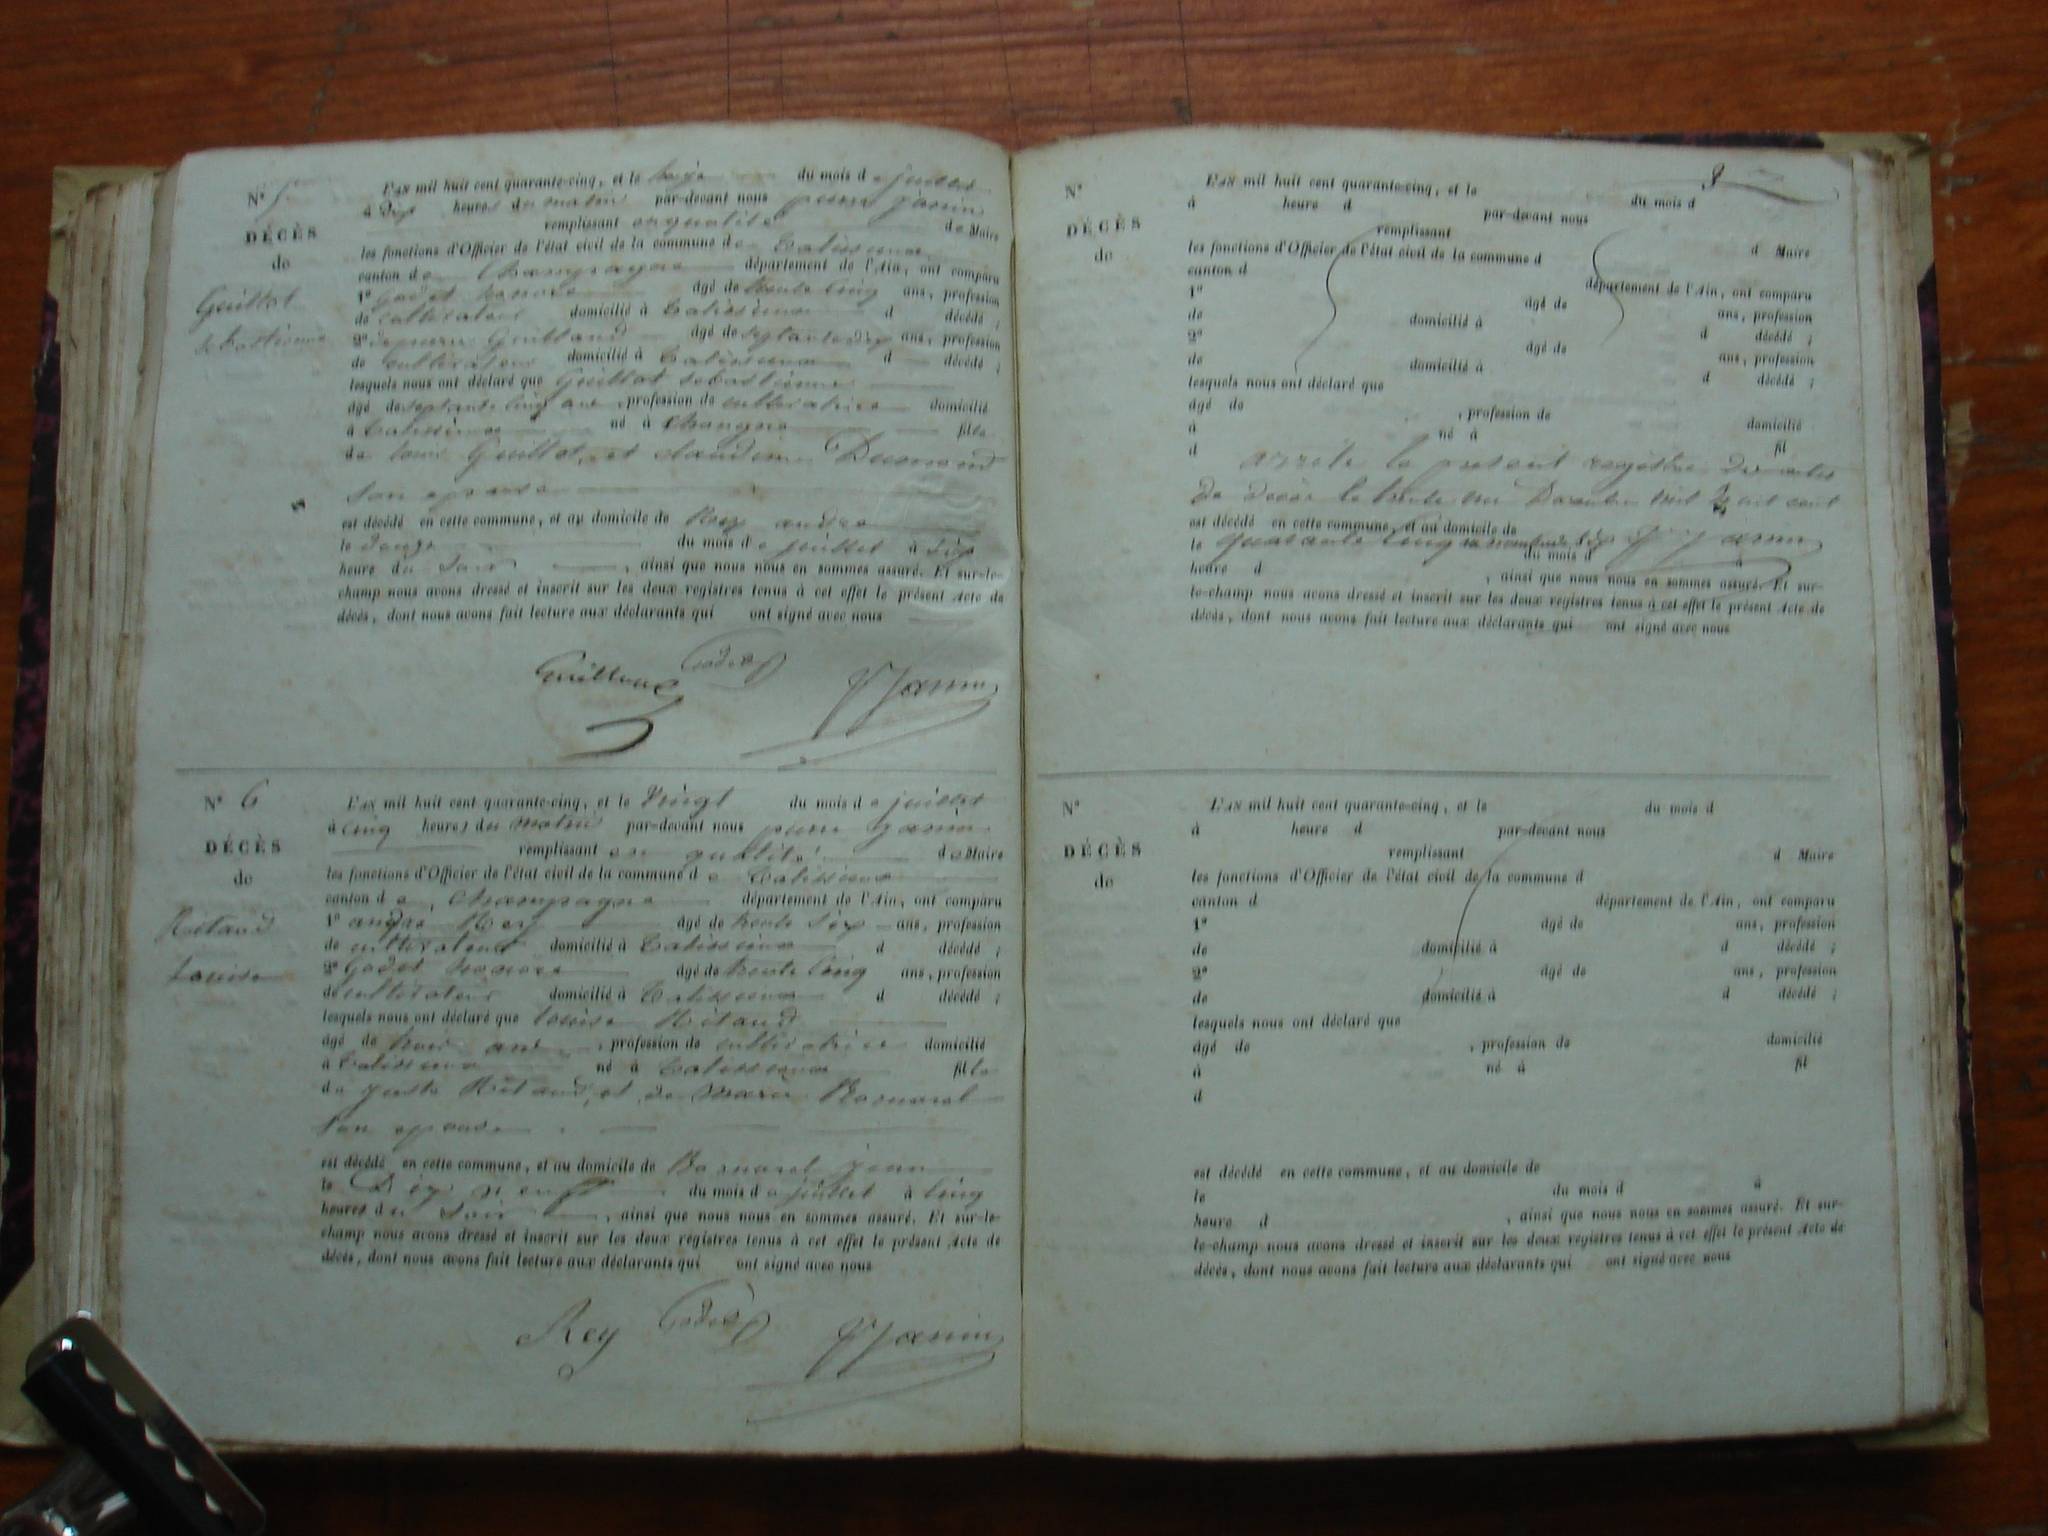 N° 5
DÉCÈS
de
Guillot
sebastienne
L'AN mil huit cent quarante-cinq, et le du mois de juillet
à dix heures du matin par-devant nous pierre Janin
remplissant en qualité de Maire
les fonctions d'Officier de l'état civil de la commune de Talissieux
canton de Champagne département de l'Ain, ont comparu
1° godet âgé de trente cinq ans, profession
de cultivateur domicilié à Talissieux d décédé ;
2° Guilland âgé de septante dix ans, profession
de cultivateur domicilié à Talissieux d décédé ;
lesquels nous ont déclaré que Guillot sebastienne
âgé de septante cinq ans, profession de cultivatrice domicilié
à Talissieux né à fille
de louis Guillot, et claudine
son epouse
est décédé en cette commune, et au domicile de Rey andré
le douze du mois de juillet à six
heure du soir, ainsi que nous nous en sommes assuré. Et sur-le-
champ nous avons dressé et inscrit sur les deux registres tenus à cet effet le présent Acte de
décès, dont nous avons fait lecture aux déclarants qui ont signé avec nous
Godet
PJanin
N° 6
DÉCÈS
de
Ritaud
Louise
L'AN mil huit cent quarante-cinq, et le Vingt du mois de juillet
à cinq heures du matin par-devant nous pierre Janin
remplissant en qualité de Maire
les fonctions d'Officier de l'état civil de la commune de Talissieux
canton de Champagne département de l'Ain, ont comparu
1° andré Rey âgé de trente six ans, profession
de cultivateur domicilié à Talissieux d décédé ;
2° Godet âgé de trente cinq ans, profession
de cultivateur domicilié à Talissieux d décédé ;
lesquels nous ont déclaré que louise Ritaud
âgé de trois ans, profession de cultivatrice domicilié
à Talissieux né à Talissieux fille
de juste Ritaud, et de marie
son epouse
est décédé en cette commune, et au domicile de Bornarel jean
le Dix neuf du mois de juillet à cinq
heures du soir, ainsi que nous nous en sommes assuré. Et sur-le-
champ nous avons dressé et inscrit sur les deux registres tenus à cet effet le présent Acte de
décès, dont nous avons fait lecture aux déclarants qui ont signé avec nous
Rey Godet PJanin
N°
DÉCÈS
de
L'AN mil huit cent quarante-cinq, et le du mois d
à heure d par-devant nous
remplissant d Maire
les fonctions d'Officier de l'état civil de la commune d
canton d département de l'Ain, ont comparu
1° âgé de ans, profession
de domicilié à d décédé ;
2° âgé de ans, profession
de domicilié à d décédé ;
lesquels nous ont déclaré que
âgé de , profession de domicilié
à né à fil
d
arrêté le present registre des actes
de décès le trente un Decembre mil huit cent
est décédé en cette commune, et au domicile de
quarante cinq PJanin
le du mois d à
heure d , ainsi que nous nous en sommes assuré. Et sur-
le-champ nous avons dressé et inscrit sur les deux registres tenus à cet effet le présent Acte de
décès, dont nous avons fait lecture aux déclarants qui ont signé avec nous
N°
DÉCÈS
de
L'AN mil huit cent quarante-cinq, et le du mois d
à heure d par-devant nous
remplissant d Maire
les fonctions d'Officier de l'état civil de la commune d
canton d département de l'Ain, ont comparu
1° âgé de ans, profession
de domicilié à d décédé ;
2° âgé de ans, profession
de domicilié à d décédé ;
lesquels nous ont déclaré que
âgé de , profession de domicilié
à né à fil
d
est décédé en cette commune, et au domicile de
le du mois d à
heure d , ainsi que nous nous en sommes assuré. Et sur-
le-champ nous avons dressé et inscrit sur les deux registres tenus à cet effet le présent Acte de
décès, dont nous avons fait lecture aux déclarants qui ont signé avec nous